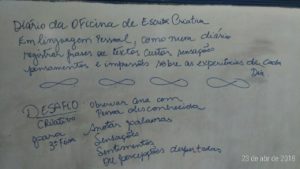 Diário da Oficina de Escrita Criativa
Em linguagem Pessoal, como num diário
registrar frases ou textos curtos, sensações
pensamentos e impressões sobre as experiências de cada
Dia
1) DESAFIO
CRIATIVO
para
3ª feira
Observar uma com
Pessoa desconhecida
Anotar palavras
Sensações
Sentimentos
OU percepções despertadas
23 de abr de 2018